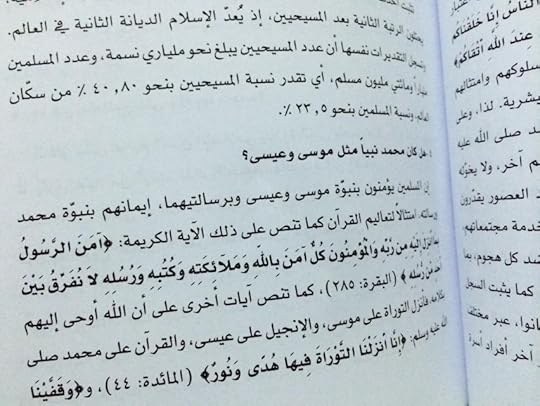 يحتلون الرتبة الثانية بعد المسيحيين، إذ يُعدّ الإسلام الديانة الثانية في العالم.
التقديرات نفسها أن عدد المسيحيين يبلغ نحو ملياري نسمة، وعدد المسلمين
ملياراً ومائتي مليون مسلم، أي تقدر نسبة المسيحيين بنحو ٤٠,٨٠ ٪ من سكّان
العالم، ونسبة المسلمين بنحو ٢٣,٥ ٪.
هل كان محمد نبياً مثل موسى وعيسى؟
إن المسلمين يؤمنون بنبوّة موسى وعيسى وبرسالتيهما، إيمانهم بنبوّة محمد
ورسالته، امتثالاً لتعاليم القرآن كما تنص على ذلك الآية الكريمة: ﴿آمَنَ الرَّسُولُ
بِمَا أُنْزِلَ إِلَيْهِ مِن رَّبِّهِ وَالْمُؤْمِنُونَ كُلٌّ آمَنَ بِاللَّهِ وَمَلَائِكَتِهِ وَكُتُبِهِ وَرُسُلِهِ لَا نُفَرِّقُ بَيْنَ
أَحَدٍ مِّن رُّسُلِهِ﴾ (البقرة: ٢٨٥)، كما تنص آيات أخرى على أن الله أوحى إليهم
كلامه، فأنزل التوراة على موسى، والإنجيل على عيسى، والقرآن على محمد صلى
الله عليه وسلم: ﴿إِنَّا أَنزَلْنَا التَّوْرَاةَ فِيهَا هُدًى وَنُورٌ﴾ (المائدة: ٤٤)، و﴿وَقَفَّيْنَا
النَّاسُ إِنَّا خَلَقْنَاكُم
عِندَ اللَّهِ أَتْقَاكُمْ﴾
سلوكهم وامتثالهم
لبشرية. لذا، وعلى
مد صلى الله عليه
م آخر، ولا يخوّله
العصور يقدّرون
خدمة مجتمعاتهم،
ضد كل هجوم، بما
كما يثبت السجل
انوا، عبر مختلف
آخر أفراد أسرة